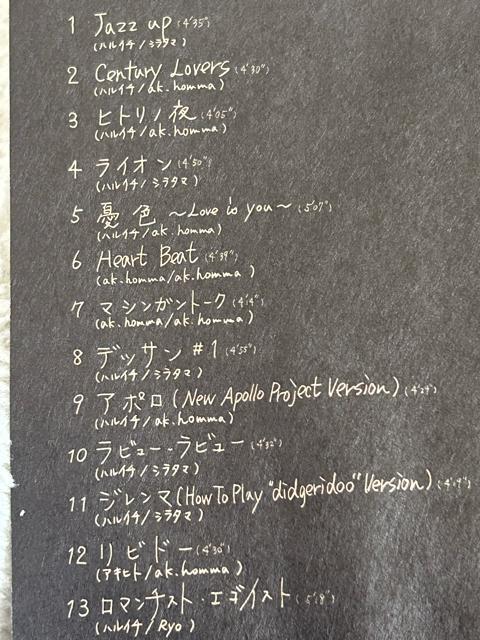 1 Jazz up (4'35")
(ハルイチ/シラタマ)
2 Century Lovers (4'30")
(ハルイチ/ak.homma)
3 ヒトリノ夜 (4'05")
(ハルイチ/ak.homma)
4 ライオン (4'50")
(ハルイチ/シラタマ)
5 憂色 ～Love is you～ (5'07")
(ハルイチ/ak.homma)
6 Heart Beat (4'39")
(ak.homma/ak.homma)
7 マシンガントーク (4'4")
(ak.homma/ak.homma)
8 デッサン #1 (4'55")
(ハルイチ/シラタマ)
9 アポロ (New Apollo Project Version) (4'29")
(ハルイチ/ak.homma)
10 ラビュー・ラビュー (4'32")
(ハルイチ/シラタマ)
11 ジレンマ (How To Play "didgeridoo" Version) (4'19")
(ハルイチ/シラタマ)
12 リビドー (4'30")
(アキヒト/ak.homma)
13 ロマンチスト・エゴイスト (5'18")
(ハルイチ/Ryo)